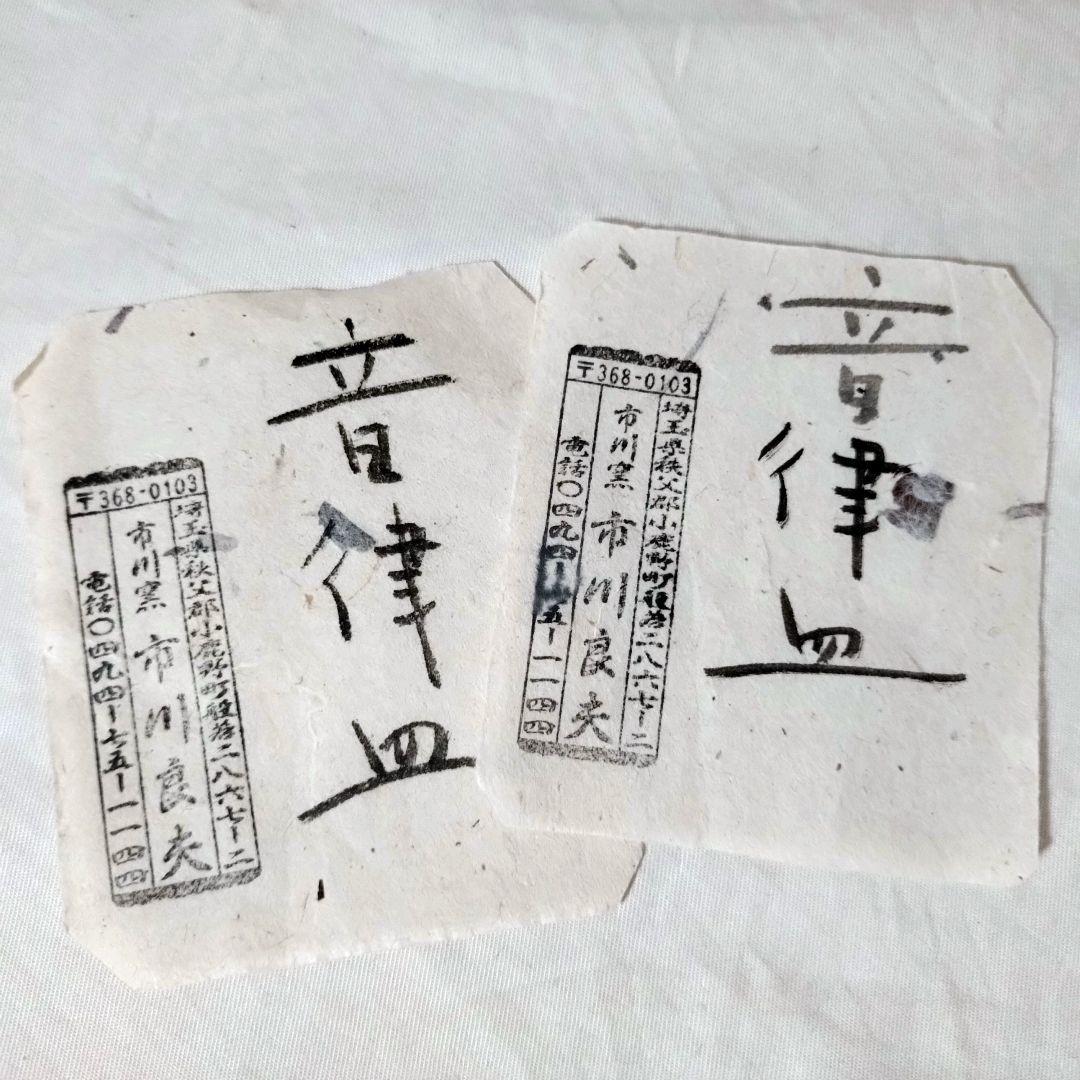 音律皿
〒368-0103
埼玉県秩父郡小鹿野町般若二八六七ー二
市川窯 市川良夫
電話〇四九四ー七五ー一一四四
音律皿
〒368-0103
埼玉県秩父郡小鹿野町般若二八六七ー二
市川窯 市川良夫
電話〇四九四ー 五ー一一四四